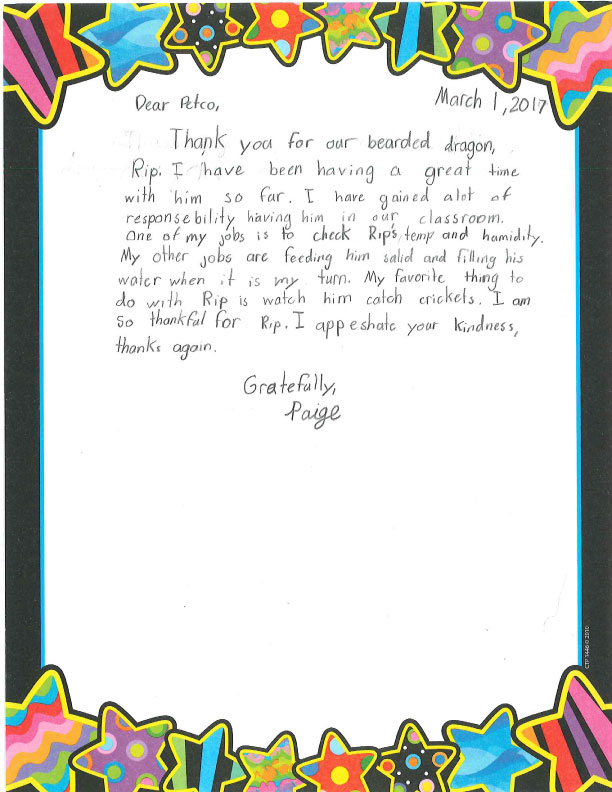 March 1, 2017
Dear Petco,
Thank you for our bearded dragon,
Rip. I have been having a great time
with him so far. I have gained alot of
responsebility having him in our classroom.
One of my jobs is to check Rip's temp and hamidity.
My other jobs are feeding him salid and filling his
water when it is my turn. My favorite thing to
do with Rip is watch him catch crickets. I am
so thankful for Rip. I appeshate your kindness,
thanks again.
Gratefully,
Paige
CTP 1446 © 2010